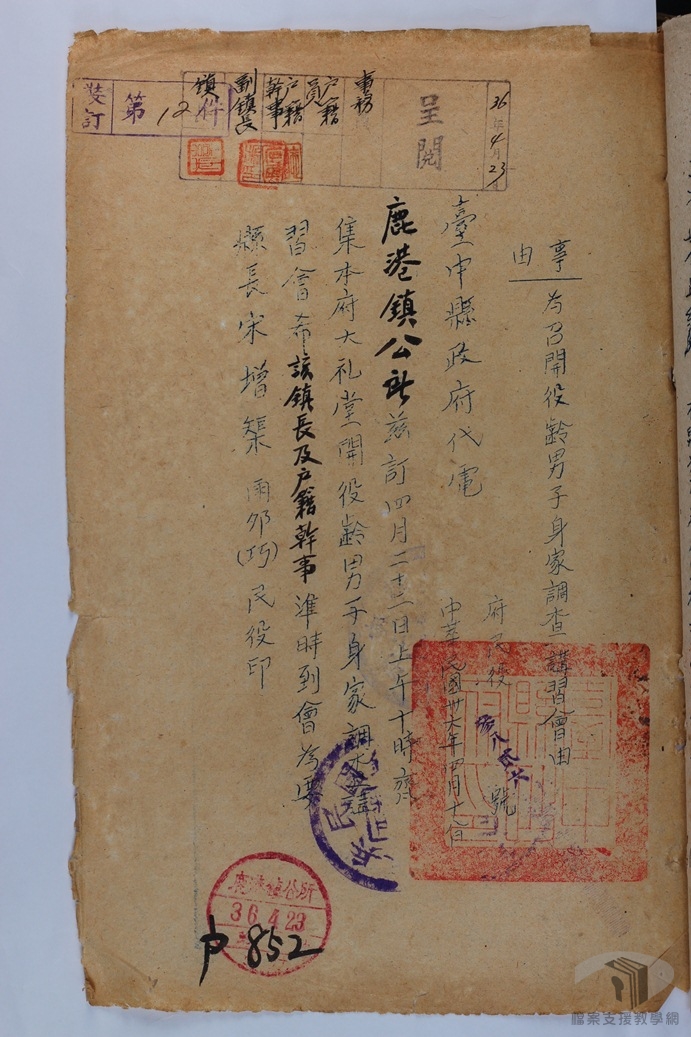 36年4月23日
呈閱
事務
戶籍員
戶籍幹事
副鎮長
鎮
第12件
裝訂
事由
為召開役齡男子身家調查講習會由
臺中縣政府代電
府民役
號
中華民國卅六年四月十七日
鹿港鎮公所茲訂四月二十二日上午十時齊
集本府大礼堂開役齡男子身家調查講
習會希該鎮長及戶籍幹事準時到會為要
縣長宋增榘雨卯(巧)民役印
鹿港鎮公所
36.4.23
戶852
檔案支援教學網